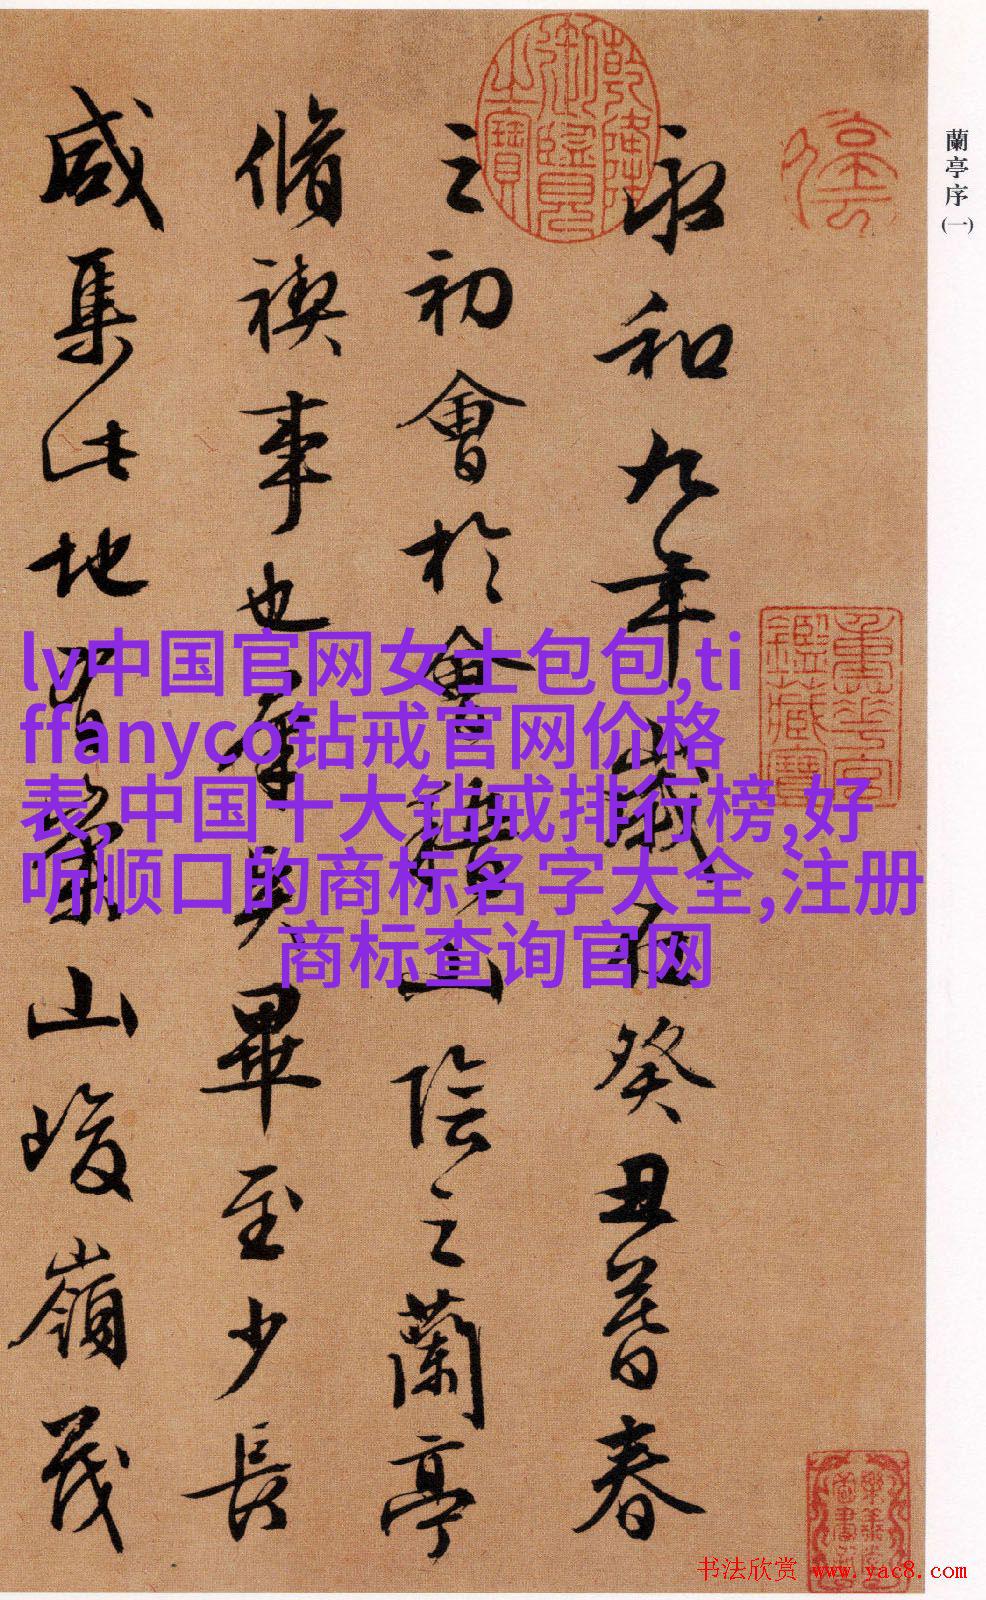 蘭亭序(一)
永和九年歲在癸丑暮春
之初會於會稽山陰之蘭亭
脩禊事也羣賢畢至少長
咸集此地有崇山峻嶺茂
乾隆御覽之寶
lv中国官网女士包包,ti
ffanyco钻戒官网价格
表,中国十大钻戒排行榜,好
听顺口的商标名字大全,注册
商标查询官网
书法欣赏 www.yac8.com